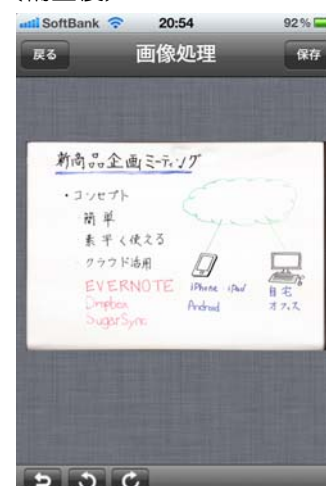 SoftBank 20:54 92%
戻る 画像処理 保存
新商品企画ミーティング
・コンセプト
簡単
素早く使える
クラウド活用
EVERNOTE
Dropbox
SugarSync
iPhone iPad
Android
自宅
オフィス